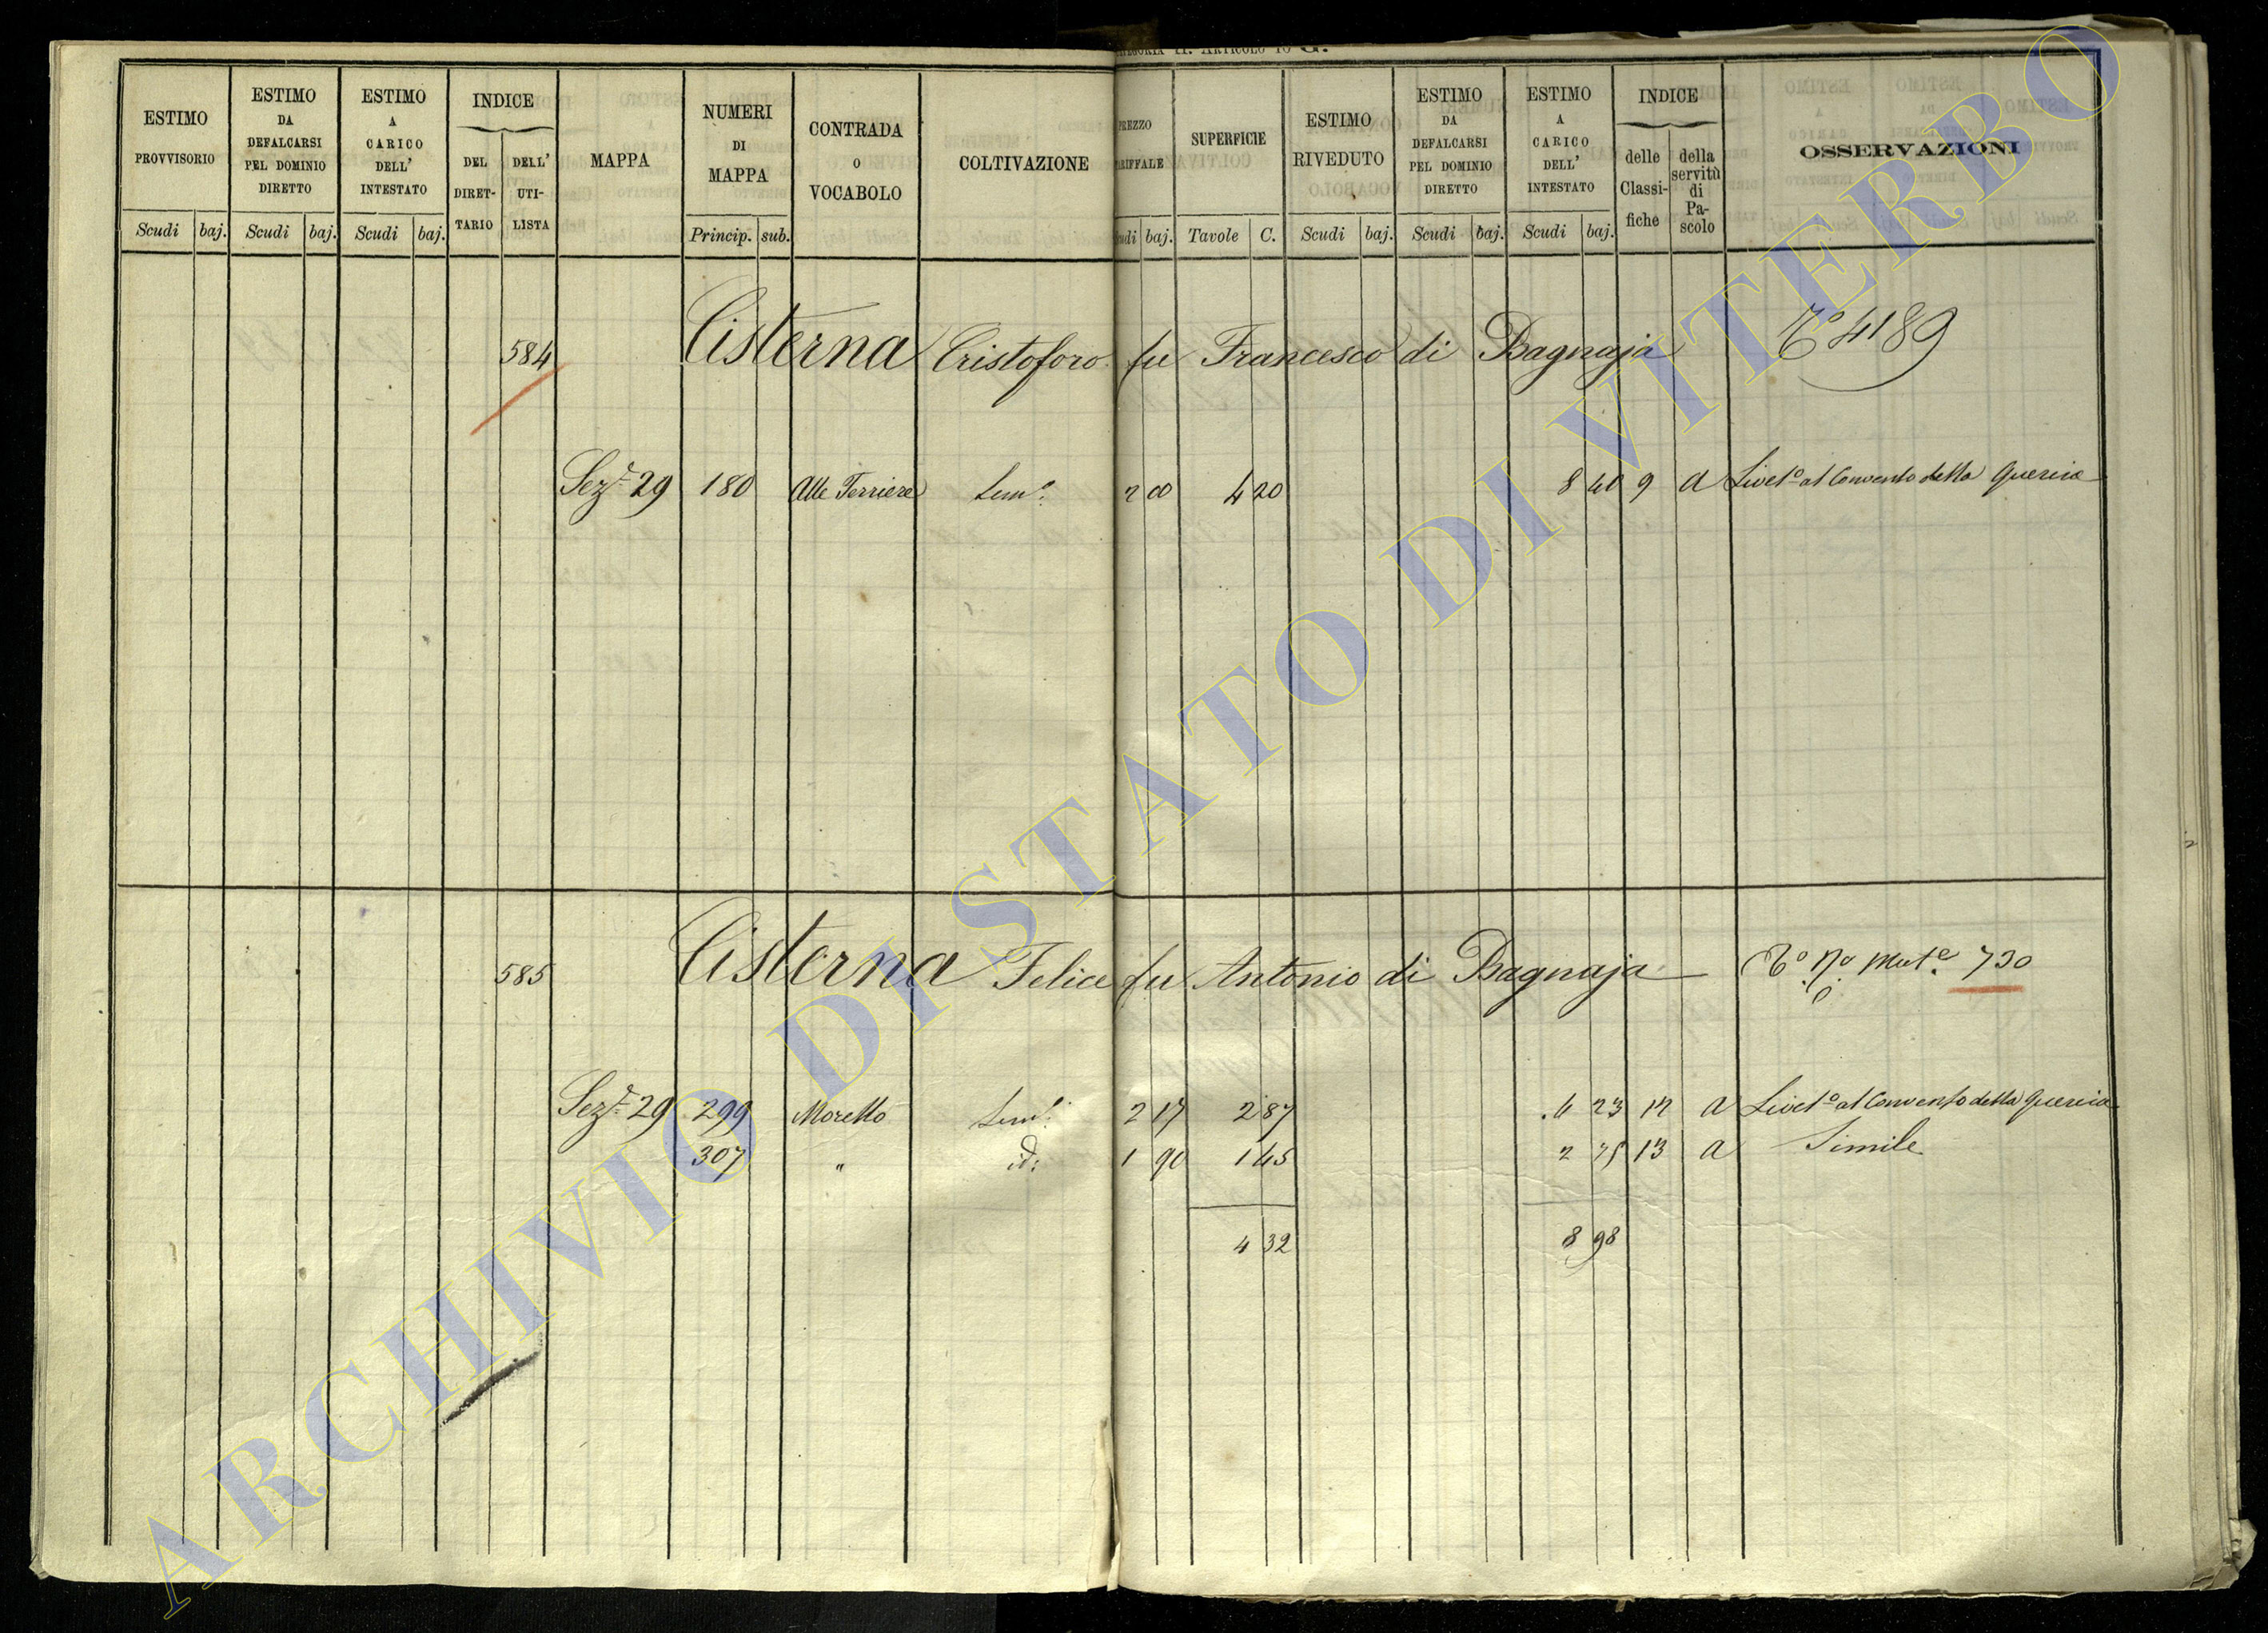 CATEGORIA II. ARTICOLO 10 G.
ESTIMO PROVVISORIO
ESTIMO DA DEFALCARSI PEL DOMINIO DIRETTO
ESTIMO A CARICO DELL' INTESTATO
INDICE
DEL DIRET-TARIO
DELL' UTI-LISTA
MAPPA
NUMERI DI MAPPA
CONTRADA O VOCABOLO
COLTIVAZIONE
PREZZO TARIFFALE
SUPERFICIE
ESTIMO RIVEDUTO
ESTIMO DA DEFALCARSI PEL DOMINIO DIRETTO
ESTIMO A CARICO DELL' INTESTATO
INDICE
delle Classi-fiche
della servitù di Pa-scolo
OSSERVAZIONI
Scudi baj. Scudi baj. Scudi baj. Princip. sub. Scudi baj. Tavole C. Scudi baj. Scudi baj. Scudi baj.
584 Cisterna Cristoforo fu Francesco di Bagnaja To 4189
Sezr. 29 180 Alle Ferriere Semo. 2 00 4 20 8 40 9 a Livelo al Convento della Quercia
585 Cisterna Felice fu Antonio di Bagnaja 730
Sezr. 29 299 Moretto Semo. 2 17 2 87 6 23 12 a Livelo al Convento della Quercia
307 " id: 1 90 1 45 2 75 13 a Simile
4 32 8 98
ARCHIVIO DI STATO DI VITERBO